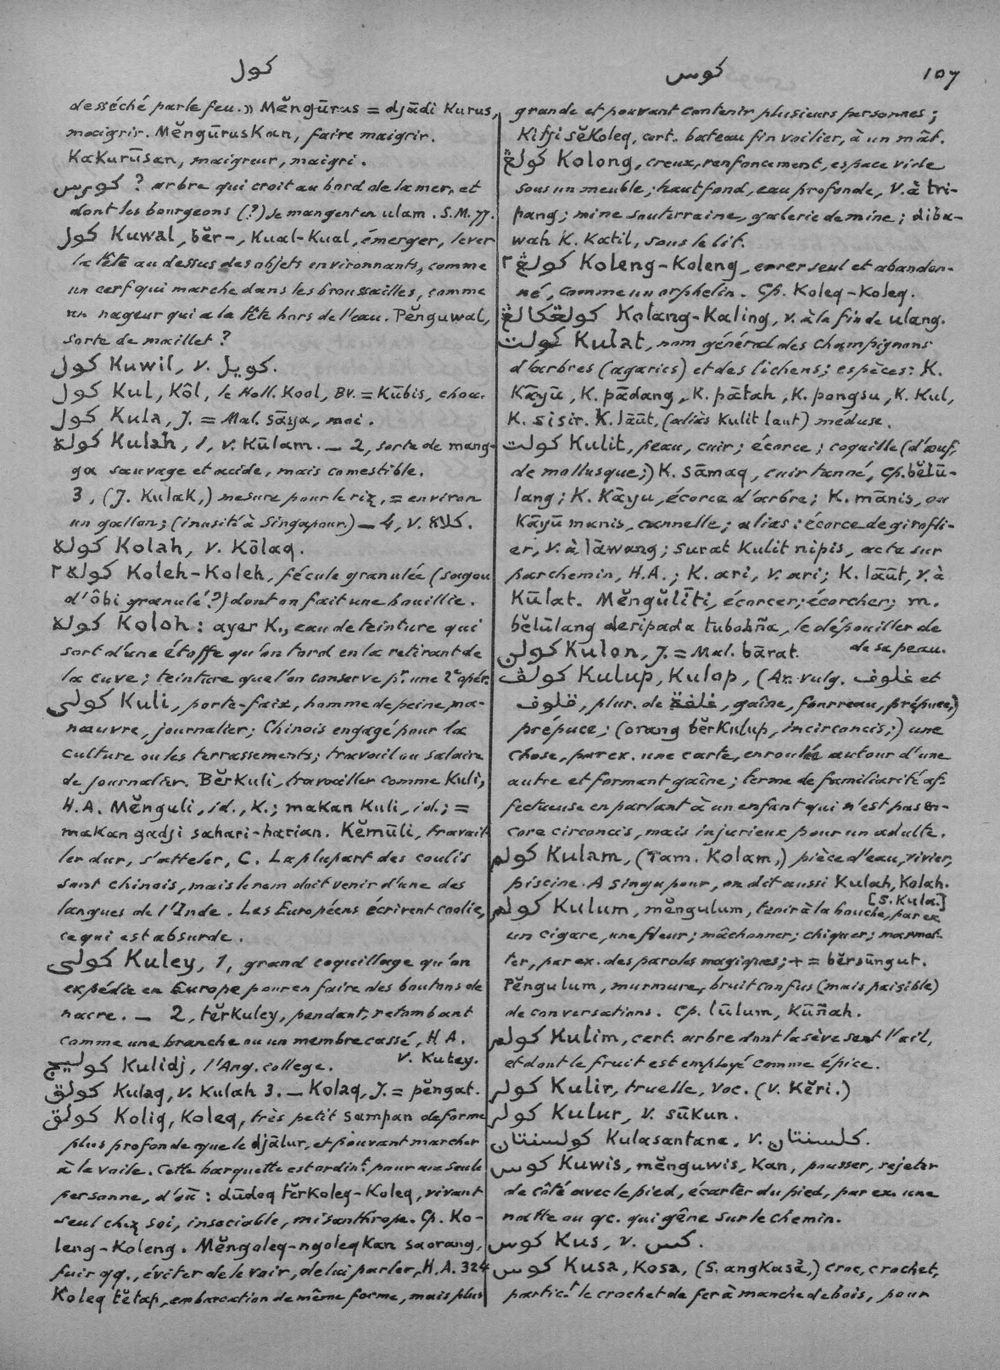 كول
كوس
107
desséché par le feu.» Mĕngūrus = djādi Kurus,
maigrir. MĕngūrusKan, faire maigrir.
KaKurūsan, maigreur, maigri.
كورس ? arbre qui croit au bord de la mer, et
dont les bourgeons (?) se mangent en ulam. S.M. 77.
كول Kuwal, bĕr-, Kual-Kual, émerger, lever
la tête au dessus des objets environnants, comme
un cerf qui marche dans les broussailles, comme
un nageur qui a la tête hors de l'eau. Pĕnguwal,
sorte de maillet ?
كول Kuwil, v. كويل.
كول Kul, Kôl, le Holl. Kool, Bv. = Kūbis, chou.
كول Kula, J. = Mal. sāya, moi.
كوله Kulah, 1, v. Kūlam. — 2, sorte de mang-
ga sauvage et acide, mais comestible.
3, (J. KulaK,) mesure pour le riz, = environ
un gallon; (inusité à Singapour) — 4, v. كلاه.
كوله Kolah, v. Kôlaq.
كوله٢ Koleh-Koleh, fécule granulée (sagou
d'ôbi granulé?) dont on fait une bouillie.
كوله Koloh: ayer K., eau de teinture qui
sort d'une étoffe qu'on tord en la retirant de
la cuve; teinture que l'on conserve pr. une 2e opér.
كولي Kuli, porte-faix, homme de peine, ma-
nœuvre, journalier; Chinois engagé pour la
culture ou les terrassements; travail ou salaire
de journalier. BĕrKuli, travailler comme Kuli,
H.A. Mĕnguli, id., K.; makan Kuli, id.; =
makan gadji sahari-harian. Kĕmūli, travail-
ler dur, s'atteler, C. La plupart des coulis
sont chinois, mais le nom doit venir d'une des
langues de l'Inde. Les Européens écrivent coolie,
ce qui est absurde.
كولي Kuley, 1, grand coquillage qu'on
expédie en Europe pour en faire des boutons de
nacre. — 2, tĕrKuley, pendant, retombant
comme une branche ou un membre cassé, H.A.
v. Kutey.
كوليج Kulidj, l'Ang. college.
كولق Kulaq, v. Kulah 3. — Kolaq, J. = pĕngat.
كولق Koliq, Koleq, très petit sampan de forme
plus profonde que le djālur, et pouvant marcher
à la voile. Cette barquette est ordint. pour une seule
personne, d'où: dūdoq tĕrKoleq-Koleq, vivant
seul chez soi, insociable, misanthrope. Cp. Ko-
leng-Koleng. Mĕngoleq-ngoleqKan saorang,
fuir qq., éviter de le voir, de lui parler, H.A. 324
Koleq tĕtap, embarcation de même forme, mais plus
grande et pouvant contenir plusieurs personnes;
Kitji sĕKoleq, cert. bateau fin voilier, à un mât.
كولڠ Kolong, creux, renfoncement, espace vide
sous un meuble; haut fond, eau profonde, v. à tri-
pang; mine souterraine, galerie de mine; diba-
wah K. Katil, sous le lit.
كولڠ٢ Koleng-Koleng, errer seul et abandon-
né, comme un orphelin. Cp. Koleq-Koleq.
كولڠكالڠ Kolang-Kaling, v. à la fin de ulang.
كولت Kulat, nom général des champignons
d'arbres (agarics) et des lichens; espèces: K.
Kāyū, K. pādang, K. pātah, K. pongsu, K. Kul,
K. sisir. K. lāūt, (alias Kulit laut) méduse.
كولت Kulit, peau, cuir; écorce; coquille (d'œuf,
de mollusque;) K. sāmaq, cuir tanné, cp. bĕlū-
lang; K. Kāyu, écorce d'arbre; K. mānis, ou
Kāyū manis, cannelle; alias: écorce de girofli-
er, v. à lāwang; surat Kulit nipis, acte sur
parchemin, H.A.; K. ari, v. ari; K. lāūt, v. à
Kūlat. Mĕngŭlīti, écorcer; écorcher; m.
bĕlūlang deripada tubohña, le dépouiller de
de sa peau.
كولن Kulon, J. = Mal. bārat.
كولف Kulup, Kulop, (Ar. vulg. غلوف et
قلوف, plur. de غلفة, gaîne, fourreau, prépuce,)
prépuce; (orang bĕrKulup, incirconcis;) une
chose, par ex. une carte, enroulée autour d'une
autre et formant gaîne; terme de familiarité af-
fectueuse en parlant à un enfant qui n'est pas en-
core circoncis, mais injurieux pour un adulte.
كولم Kulam, (Tam. Kolam,) pièce d'eau, vivier,
piscine. A Singapour, on dit aussi Kulah, Kolah.
[S. Kula.]
كولم Kulum, mĕngulum, tenir à la bouche, par ex
un cigare, une fleur; mâchonner; chiquer; marmot-
ter, par ex. des paroles magiques; + = bĕrsūngut.
Pĕngulum, murmure, bruit confus (mais paisible)
de conversations. Cp. lūlum, Kūñah.
كولم Kulim, cert. arbre dont la sève sent l'ail,
et dont le fruit est employé comme épice.
كولر Kulir, truelle, Voc. (v. Kĕri.)
كولر Kulur, v. sūkun.
كولسنتان Kulasantana, v. كلسنتان.
كوس Kuwis, mĕnguwis, Kan, pousser, rejeter
de côté avec le pied, écarter du pied, par ex. une
natte ou qc. qui gêne sur le chemin.
كوس Kus, v. كس.
كوس Kusa, Kosa, (S. angKusa,) croc, crochet,
partict. le crochet de fer à manche de bois, pour